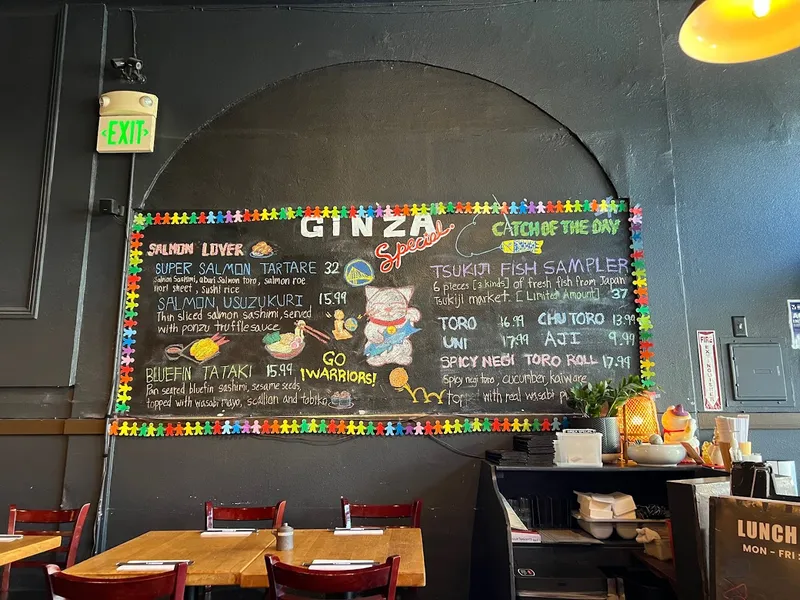 EXIT
GINZA
Special
SALMON LOVER
SUPER SALMON TARTARE 32
Salmon Sashimi, aburi Salmon toro, salmon roe
nori sheet, sushi rice
SALMON USUZUKURI 15.99
Thin sliced salmon sashimi, served
with ponzu truffle sauce
BLUEFIN TATAKI 15.99
Pan seared bluefin sashimi, sesame seeds,
topped with wasabi mayo, scallion and tobiko.
GO
WARRIORS!
CATCH OF THE DAY
TSUKIJI FISH SAMPLER
6 pieces [3 kinds] of fresh fish from Japan
Tsukiji market. [Limited Amount] 37
TORO 16.99 CHU TORO 13.99
UNI 17.99 AJI 9.99
SPICY NEGI TORO ROLL 17.99
Spicy negi toro, cucumber, kaiware
top with real wasabi
FIRE
LUNCH
MON - FRI